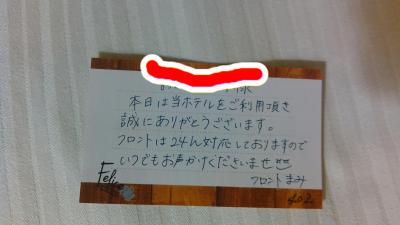 様
本日は当ホテルをご利用頂き
誠にありがとうございます。
フロントは24h対応しておりますので
いつでもお声がけくださいませ
フロント まみ
Feliz
402